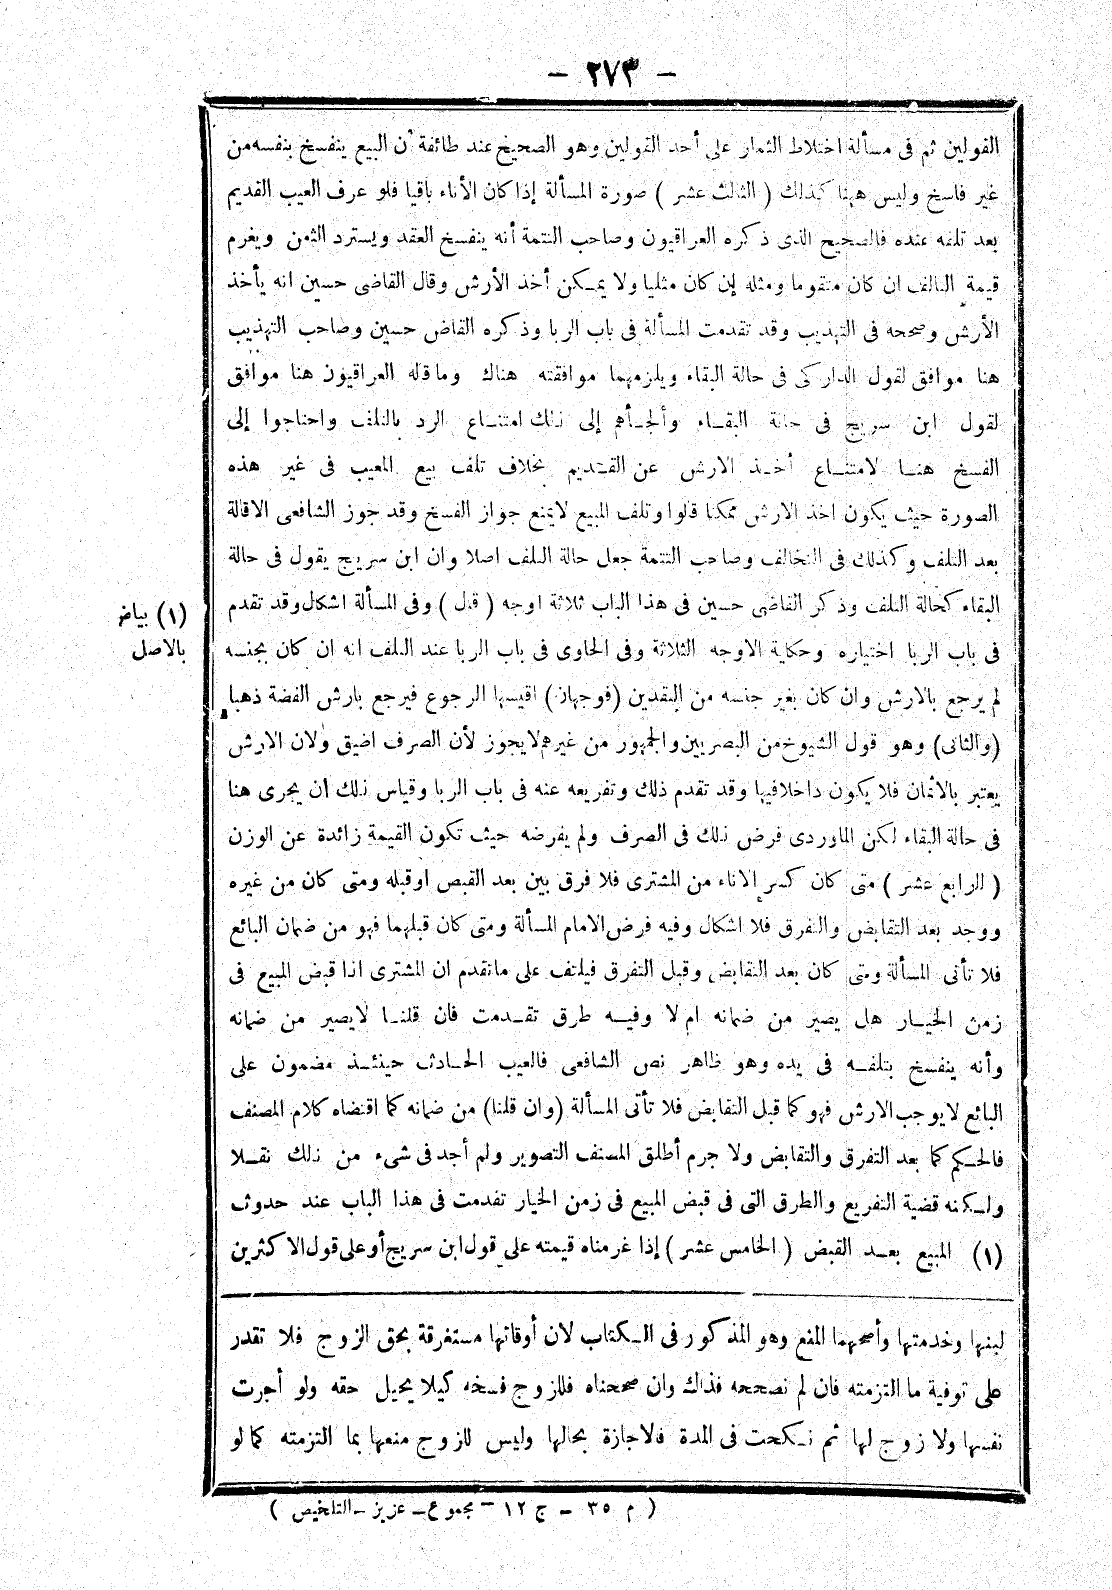 - ٢٧٣ -
القولين ثم فى مسألة اختلاط الثمار على أحد القولين وهو الصحيح عند طائفة أن البيع ينفسخ بنفسه من
غير فاسخ وليس ههنا كذلك ( الثالث عشر ) صورة المسألة إذا كان الأناء باقيا فلو عرف العيب القديم
بعد تلفه عنده فالصحيح الذى ذكره العراقيون وصاحب التتمة أنه ينفسخ العقد ويسترد الثمن ويغرم
قيمة التالف ان كان متقوما ومثله إن كان مثليا ولا يمكن أخذ الأرش وقال القاضى حسين انه يأخذ
الأرش وصححه فى التهذيب وقد تقدمت المسألة فى باب الربا وذكره القاضى حسين وصاحب التهذيب
هنا موافق لقول الداركى فى حالة البقاء ويلزمهما موافقته هناك وماقاله العراقيون هنا موافق
لقول ابن سريج فى حالة البقاء وألجأهم إلى ذلك امتناع الرد بالتلف واحتاجوا إلى
الفسخ هنا لامتناع أخذ الارش عن القديم بخلاف تلف بيع المعيب فى غير هذه
الصورة حيث يكون اخذ الارش ممكنا قالوا وتلف المبيع لايمنع جواز الفسخ وقد جوز الشافعى الاقالة
بعد التلف وكذلك فى التخالف وصاحب التتمة جعل حالة التلف اصلا وان ابن سريج يقول فى حالة
البقاء كحالة التلف وذكر القاضى حسين فى هذا الباب ثلاثة اوجه ( قيل ) وفى المسألة اشكال وقد تقدم
(١) بياض
بالاصل
فى باب الربا اختياره وحكاية الاوجه الثلاثة وفى الحاوى فى باب الربا عند التلف انه ان كان بجنسه
لم يرجع بالارش وان كان بغير جنسه من النقدين (فوجهان) اقيسها الرجوع فيرجع بارش الفضة ذهبا
(والثانى) وهو قول الشيوخ من البصريين والجمهور من غيرهم لايجوز لأن الصرف اضيق ولان الارش
يعتبر بالأثمان فلا يكون داخلا فيها وقد تقدم ذلك وتفريعه عنه فى باب الربا وقياس ذلك أن يجرى هنا
فى حالة البقاء لكن الماوردى فرض ذلك فى الصرف ولم يفرضه حيث تكون القيمة زائدة عن الوزن
( الرابع عشر ) متى كان كسر الاناء من المشترى فلا فرق بين بعد القبض اوقبله ومتى كان من غيره
ووجد بعد التقابض والتفرق فلا اشكال وفيه فرض الامام المسألة ومتى كان قبلهما فهو من ضمان البائع
فلا تأتى المسألة ومتى كان بعد التقابض وقبل التفرق فيلتفت على ماتقدم ان المشترى اذا قبض المبيع فى
زمن الخيار هل يصير من ضمانه ام لا وفيه طرق تقدمت فان قلنا لايصير من ضمانه
وأنه ينفسخ بتلفه فى يده وهو ظاهر نص الشافعى فالعيب الحادث حينئذ مضمون على
البائع لايوجب الارش فهو كما قبل التقابض فلا تأتى المسألة (وان قلنا) من ضمانه كما اقتضاه كلام المصنف
فالحكم كما بعد التفرق والتقابض ولا جرم أطلق المصنف التصوير ولم أجد فى شىء من ذلك نقلا
ولكنه قضية التفريع والطرق التى فى قبض المبيع فى زمن الخيار تقدمت فى هذا الباب عند حدوث
(١) المبيع بعد القبض ( الخامس عشر ) إذا غرمناه قيمته على قول ابن سريج أوعلى قول الاكثرين
لبنها وخدمتها وأصحهما المنع وهو المذكور فى الكتاب لان أوقاتها مستغرقة بحق الزوج فلا تقدر
على توفية ما التزمته فان لم نصححه فذاك وان صححناه فللزوج فسخه كيلا يحيل حقه ولو أجرت
نفسها ولا زوج لها ثم نكحت فى المدة فالاجازة بحالها وليس للزوج منعها بما التزمته كما لو
( م ٣٥ - ج ١٢ - مجموع - عزيز - التلخيص )